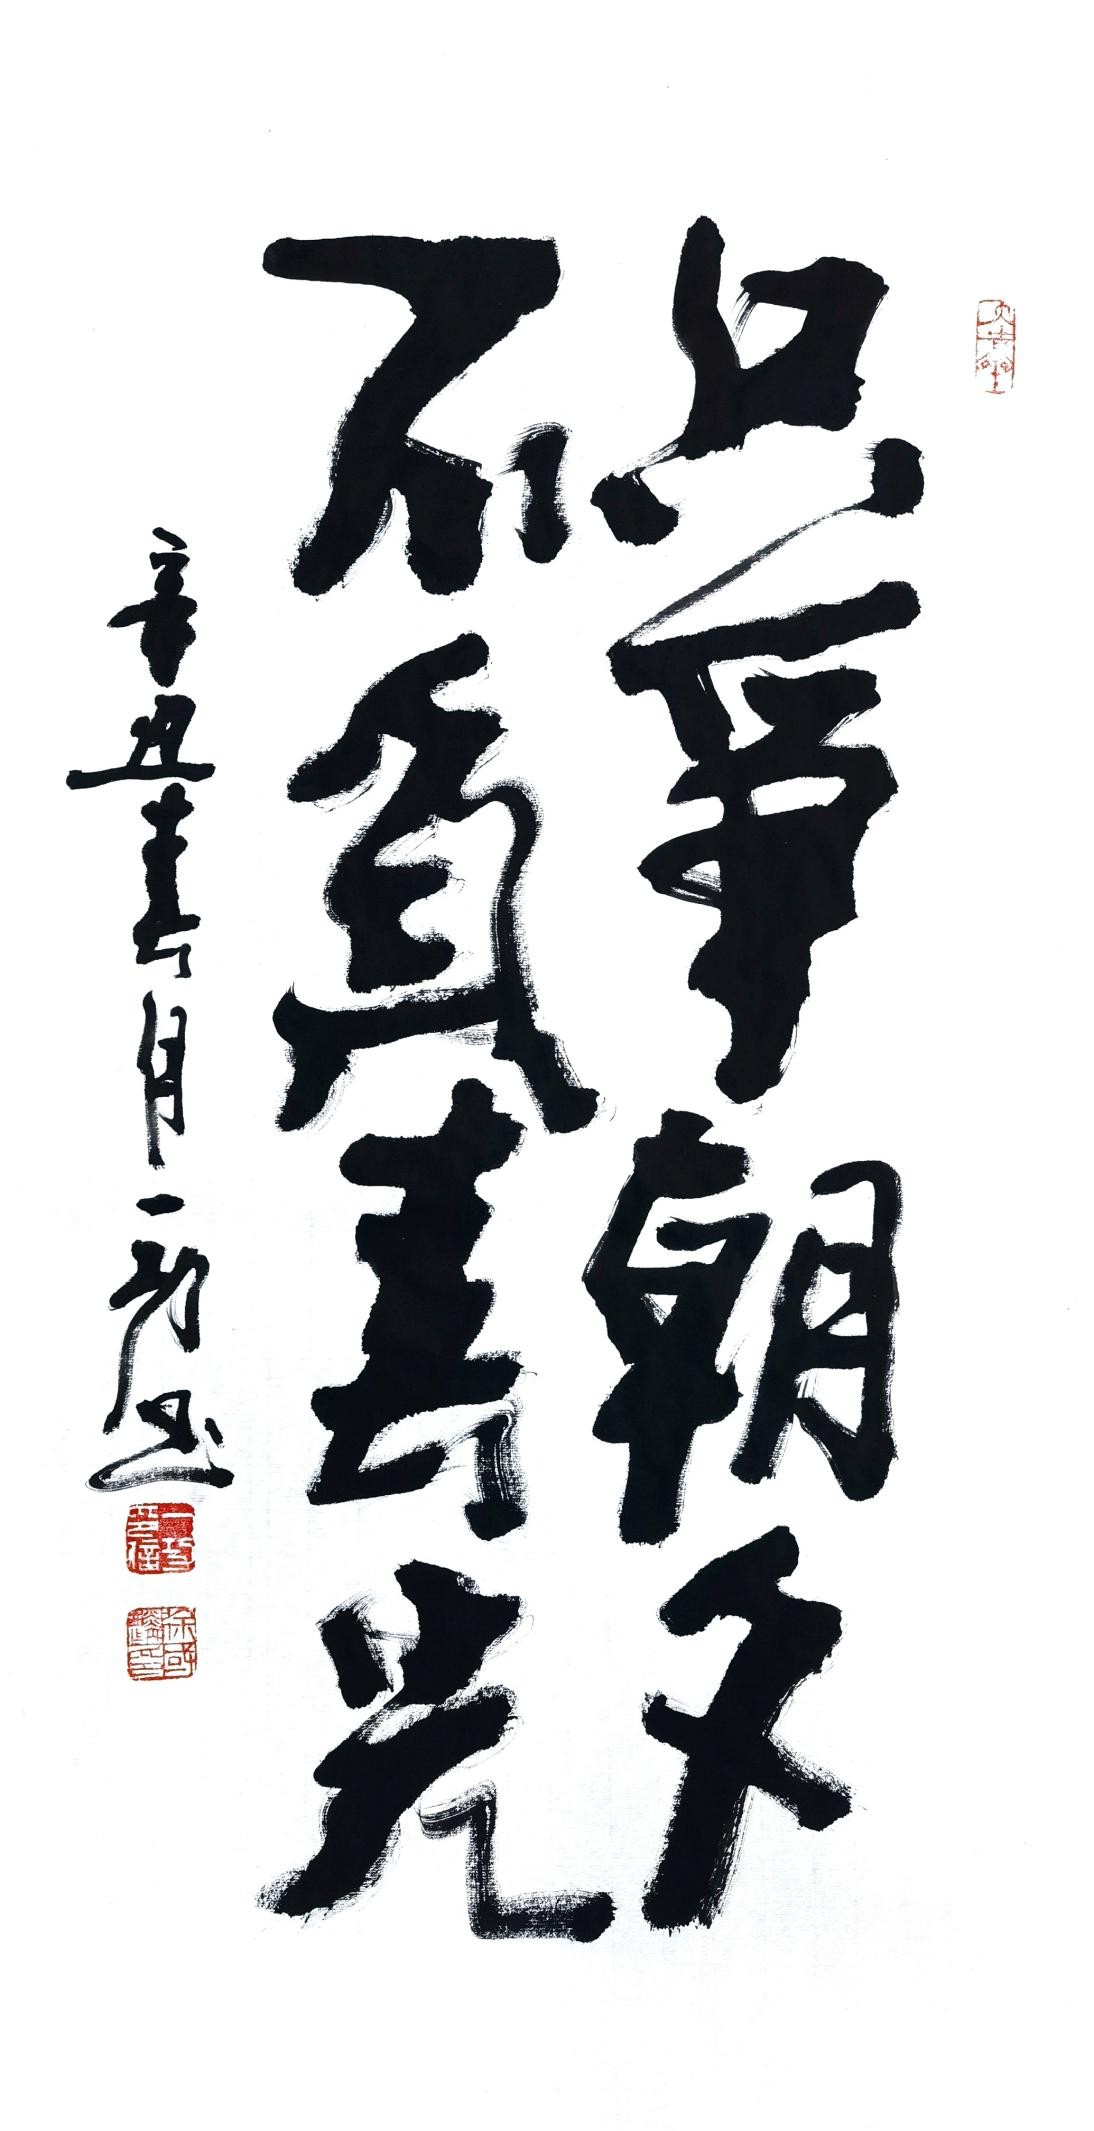 只争朝夕
不负春光
辛丑春月一功书